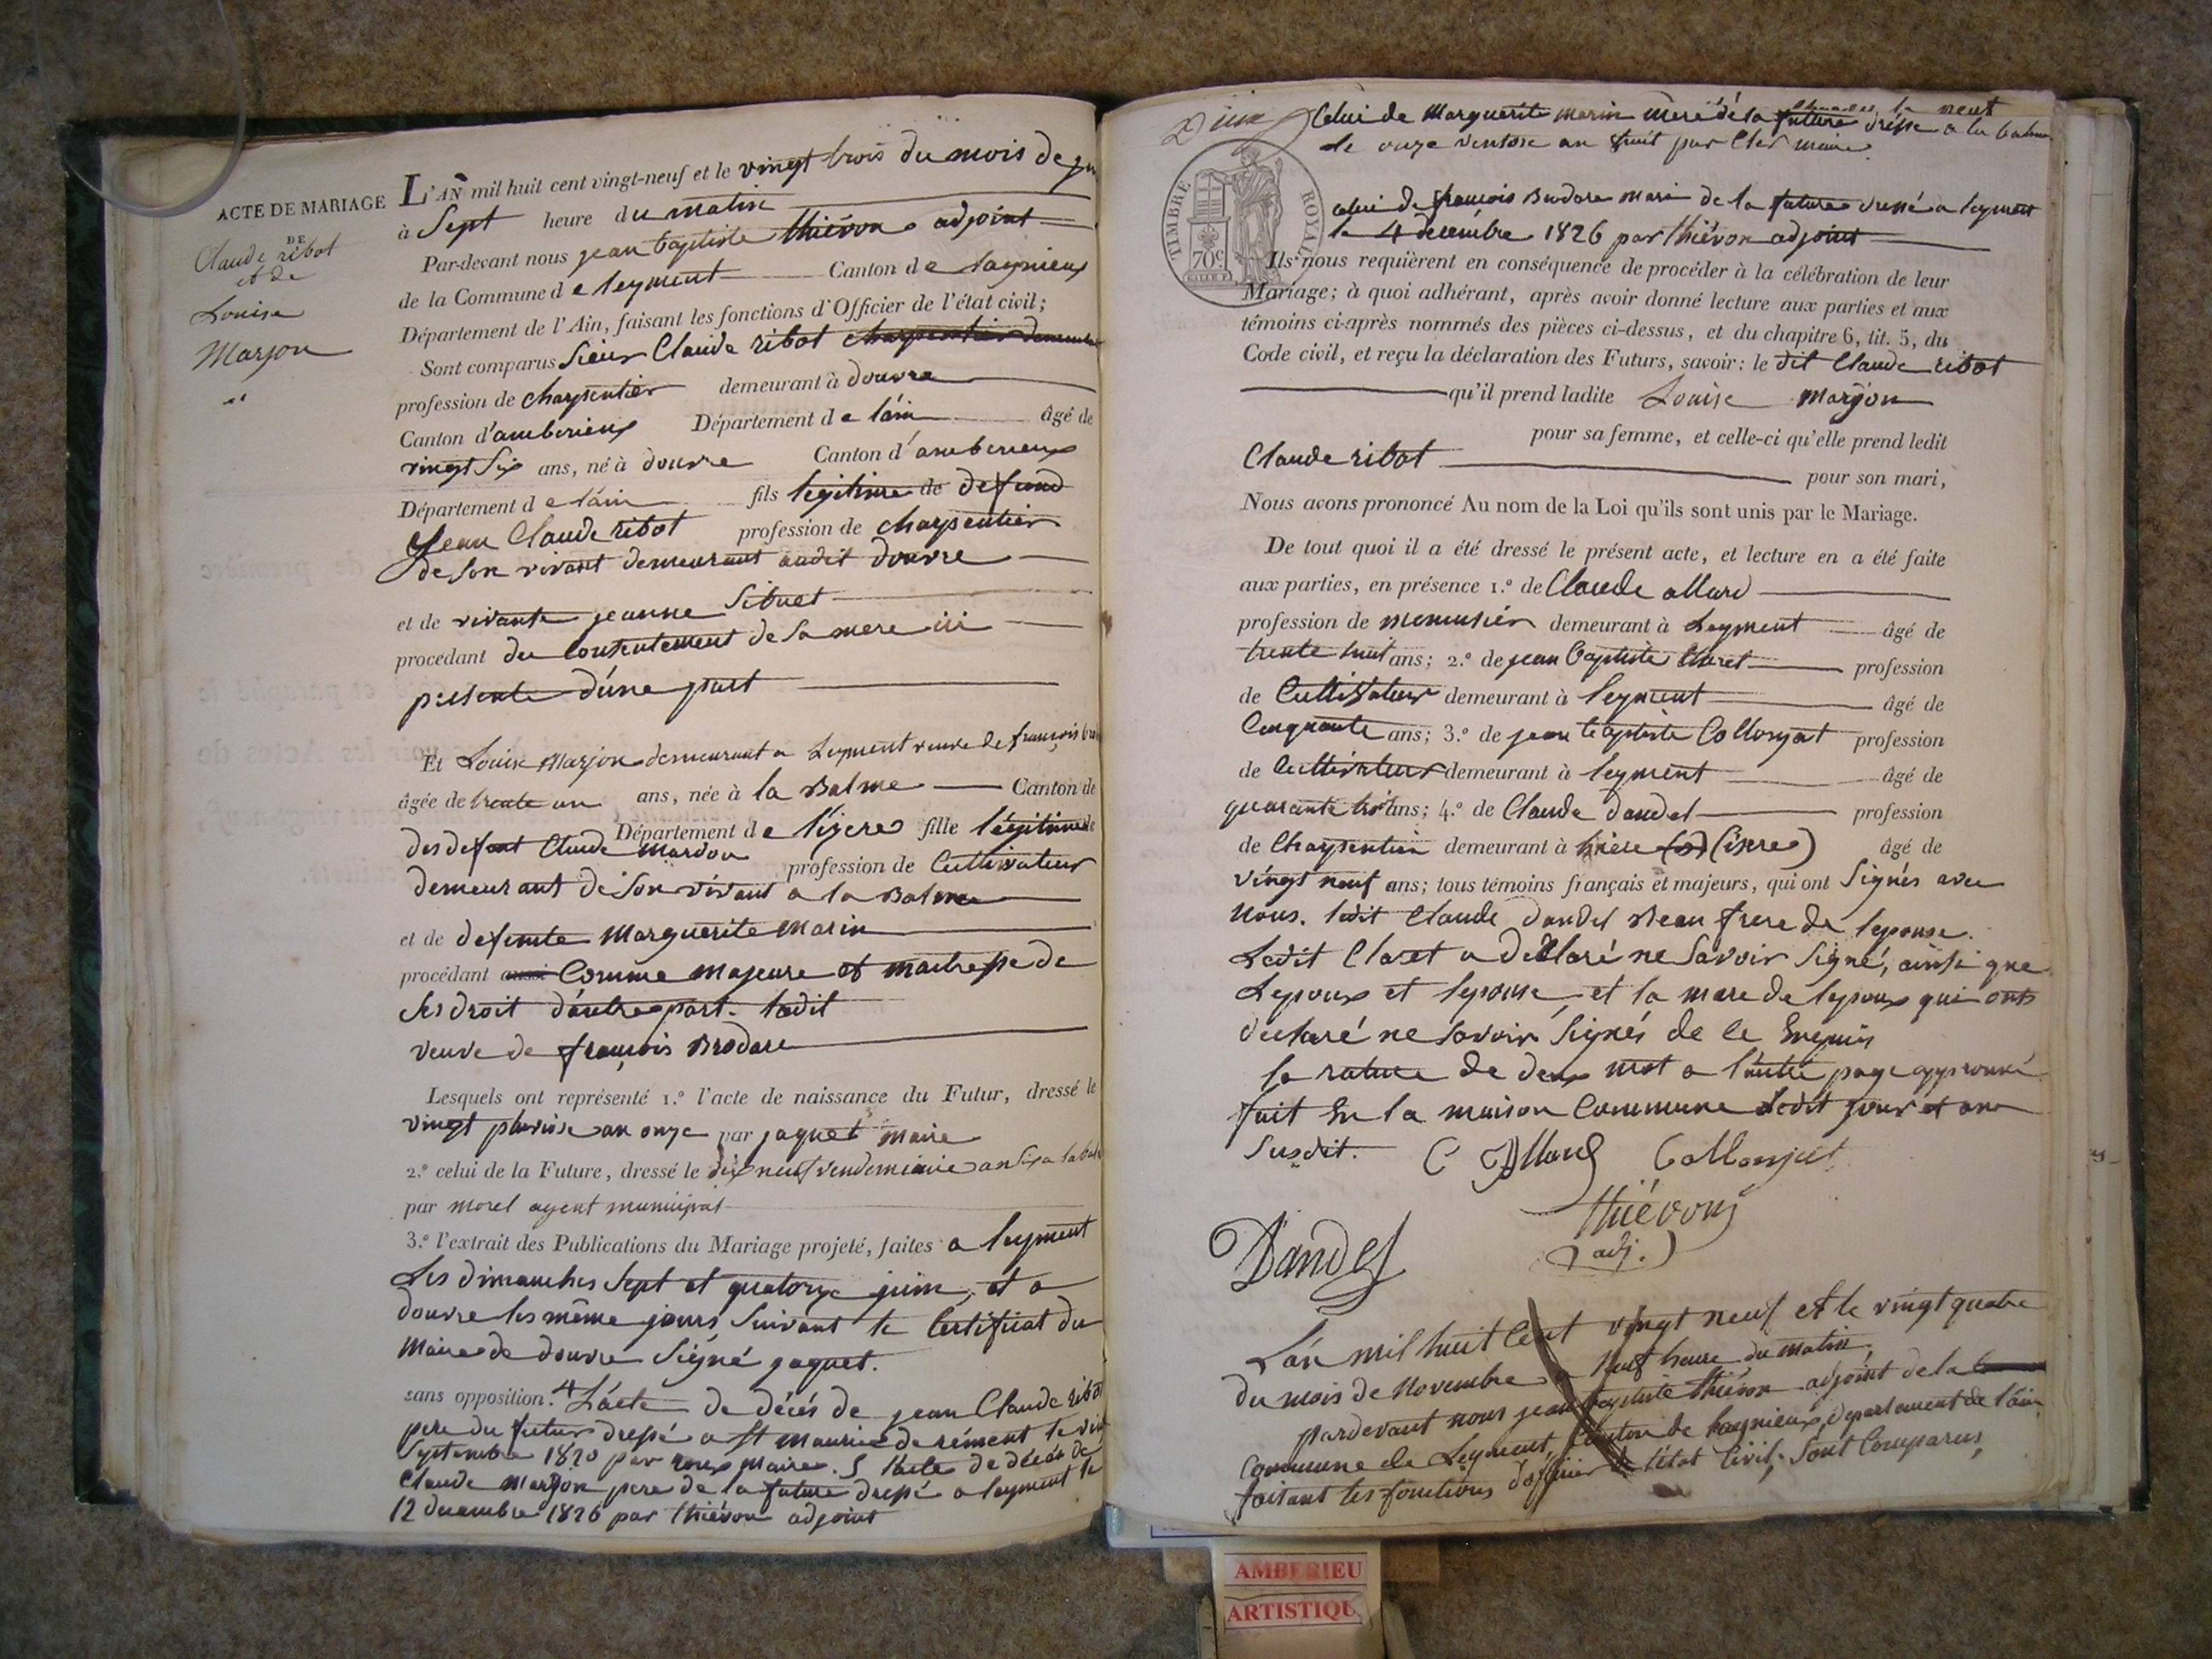 ACTE DE MARIAGE
DE
Claude ribot
et de
Louise
Marjon
L'AN mil huit cent vingt-neuf et le vingt trois du mois de
à Sept heure du matin
Par-devant nous jean baptiste thiévon adjoint
de la Commune de leyment Canton de lagnieux
Département de l'Ain, faisant les fonctions d'Officier de l'état civil;
Sont comparus Sieur Claude ribot charpentier
profession de charpentier demeurant à douvre
Canton d'amberieux Département de l'áin âgé de
vingt Six ans, né à douvre Canton d'amberieux
Département de l'áin fils légitime de defund
Jean Claude ribot profession de charpentier
de Son vivant demeurant audit douvre
et de vivante jeanne Sibuet
procedant du Consentement de Sa mere ici
présente d'úne part
Et Louise Marjon demeurant a Leyment veuve de françois
âgée de trente un ans, née à la Balme Canton de
Département de l'izere fille légitime de
des defont Claude Marjon profession de Cultivateur
demeurant de Son vivant a la Balme
et de defunte Marguerite Marin
procédant aussi Comme majeure et maitresse de
Ses droit d'áutre part. ladit
veuve de françois Brodare
Lesquels ont représenté 1.º l'acte de naissance du Futur, dressé le
vingt pluviose an onze par jaquet maire
2.º celui de la Future, dressé le dix neuf vendemiaire an Six a
par morel agent municipal
3.º l'extrait des Publications du Mariage projeté, faites a leyment
Les dimanches Sept et quatorze juin, et a
douvre les même jours, Suivant le Certificat du
Maire de douvre Signé jaquet.
sans opposition. 4 L'ácte de décés de jean Claude ribot
pere du futur dressé a St maurice de rément le
Septembre 1820 par roux Maire. 5 l'acte de décés de
Claude Marjon pere de la future dressé a leyment le
12 decembre 1826 par thiévon adjoint
Celui de Marguerite Marin mere de la future dressé a la balme
le onze ventose an huit par maire
celui de françois Brodare mari de la future dressé a leyment
le 4 decembre 1826 par thiévon adjoint
TIMBRE ROYAL
70 c.
Ils nous requièrent en conséquence de procéder à la célébration de leur
Mariage; à quoi adhérant, après avoir donné lecture aux parties et aux
témoins ci-après nommés des pièces ci-dessus, et du chapitre 6, tit. 5, du
Code civil, et reçu la déclaration des Futurs, savoir: le dit Claude ribot
qu'il prend ladite Louise marjon
pour sa femme, et celle-ci qu'elle prend ledit
Claude ribot
pour son mari,
Nous avons prononcé Au nom de la Loi qu'ils sont unis par le Mariage.
De tout quoi il a été dressé le présent acte, et lecture en a été faite
aux parties, en présence 1.º de Claude allard
profession de menusier demeurant à Leyment âgé de
trente huit ans; 2.º de jean baptiste Claret profession
de Cultivateur demeurant à leyment âgé de
Cinquante ans; 3.º de jean baptiste Collonjat profession
de Cultivateur demeurant à leyment âgé de
quarante trois ans; 4.º de Claude dandel profession
de Charpentier demeurant à hière (isere) âgé de
vingt neuf ans; tous témoins français et majeurs, qui ont Signés avec
Nous. ledit Claude dandel Beau frere de lepouse.
Ledit Claret a déclaré ne Savoir Signé, ainsi que
Lepoux et lepouse, et la mere de lepoux qui ont
declaré ne Savoir Signés de ce Enquis
la rature de deux mot a l'autre page approuvé
fait En la maison Commune Ledit jour et an
Susdit. C Allard Collonjat
thiévon
adj.
Dandel
L'án mil huit Cent vingt neuf et le vingt quatre
du mois de Novembre a Neuf heure du matin,
pardevant nous jean baptiste thiévon adjoint de la
Commune de Leyment, Canton de lagnieux, departement de l'áin
faisant les fonctions d'officier de l'état Civil, Sont Comparus,
AMBERIEU
ARTISTIQU